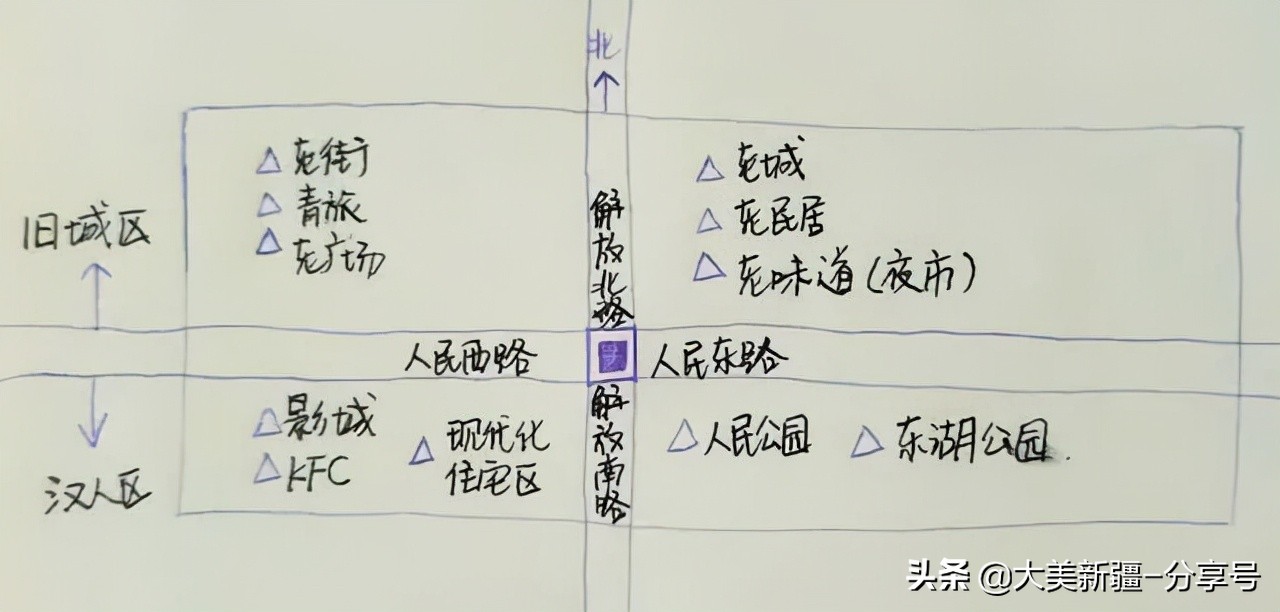 北
老街
青旅
老广场
老城
老民居
老味道(夜市)
旧城区
解放北路
人民西路
人民东路
解放南路
影城
KFC
现代化
住宅区
人民公园
东湖公园
汉人区
头条 @大美新疆-分享号